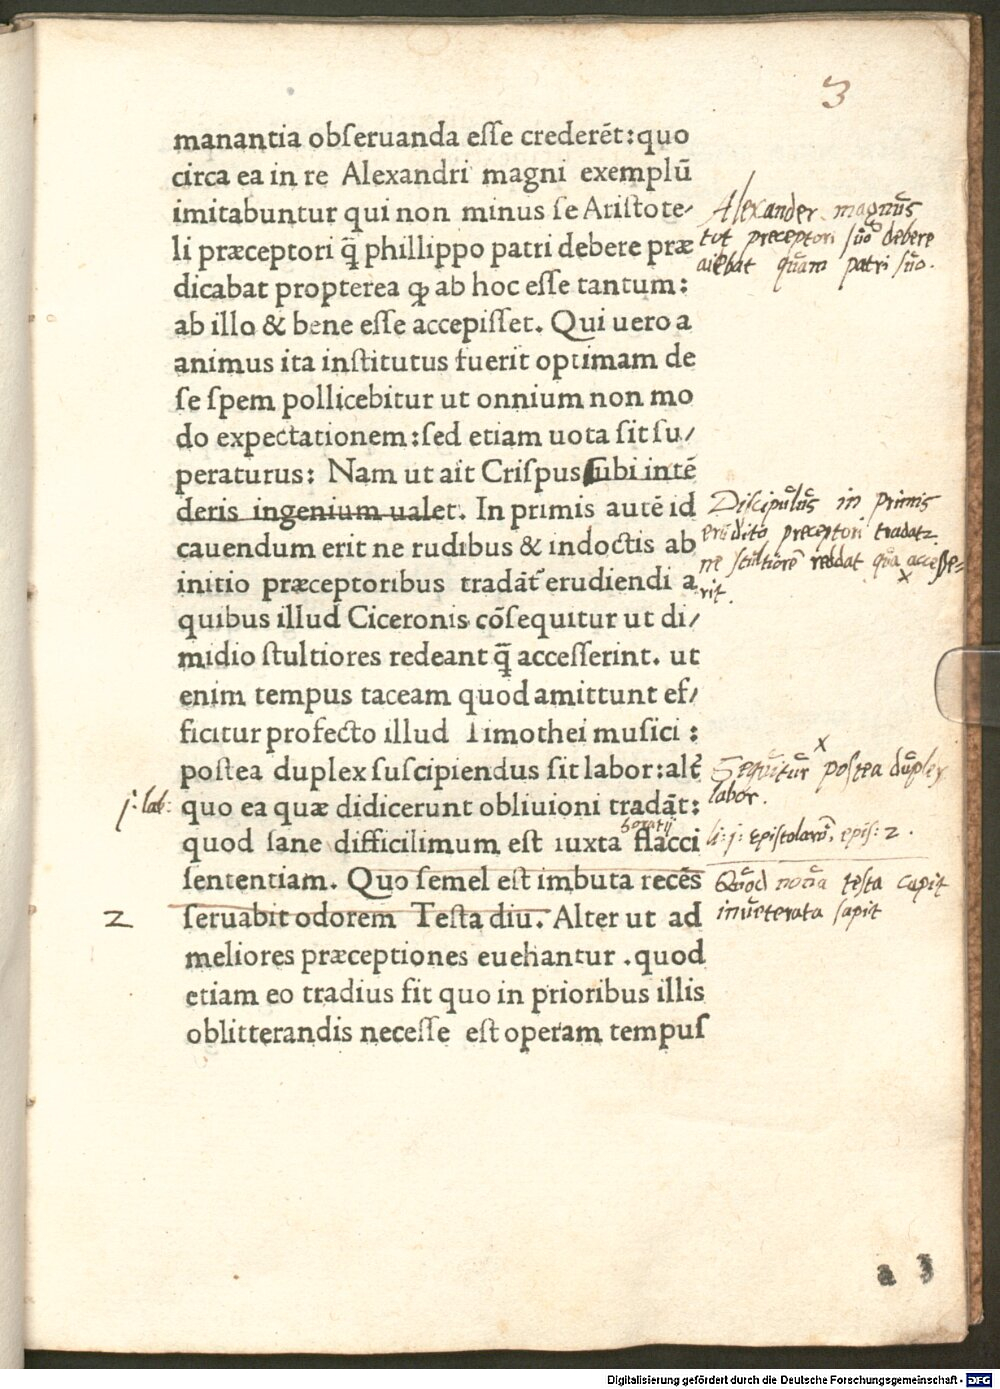 3
manantia obſeruanda eſſe crederēt:quo
circa ea in re Alexandri magni exemplū
imitabuntur qui non minus ſe Ariſtote⸗
li præceptori q̄ phillippo patri debere præ
dicabat propterea ꝙ ab hoc eſſe tantum:
ab illo & bene eſſe accepiſſet. Qui uero a
animus ita inſtitutus fuerit optimam de
ſe ſpem pollicebitur ut onnium non mo
do expectationem:ſed etiam uota ſit ſu/
peraturus: Nam ut ait Criſpus ſubi intē
deris ingenium ualet. In primis autē id
cauendum erit ne rudibus & indoctis ab
initio præceptoribus tradāt̄ erudiendi a
quibus illud Ciceronis cōſequitur ut di/
midio ſtultiores redeant q̄ acceſſerint. ut
enim tempus taceam quod amittunt ef/
ficitur profecto illud Timothei muſici :
poſtea duplex ſuſcipiendus ſit labor:alt̄
quo ea quæ didicerunt obliuioni tradāt:
horatij
quod ſane difficilimum eſt iuxta flacci
ſententiam. Quo ſemel eſt imbuta recēs
ſeruabit odorem Teſta diu. Alter ut ad
meliores præceptiones euehantur .quod
etiam eo tradius fit quo in prioribus illis
oblitterandis neceſſe eſt operam tempuſ
Alexander magnus
tot preceptori ſuo debere
aiebat quam patri ſuo.
Diſcipulus in primis
erudito preceptori tradatz
ne ſtultiorē reddat quā acceſſe=
rit.
x
x
Sequitur poſtea duplex
labor.
li: j: Epiſtolarō, epiſ: 2 .
Quod noua teſta capit
inueterata ſapit
j: lab:
2
a 3
Digitalisierung gefördert durch die Deutsche Forschungsgemeinschaft - DFG